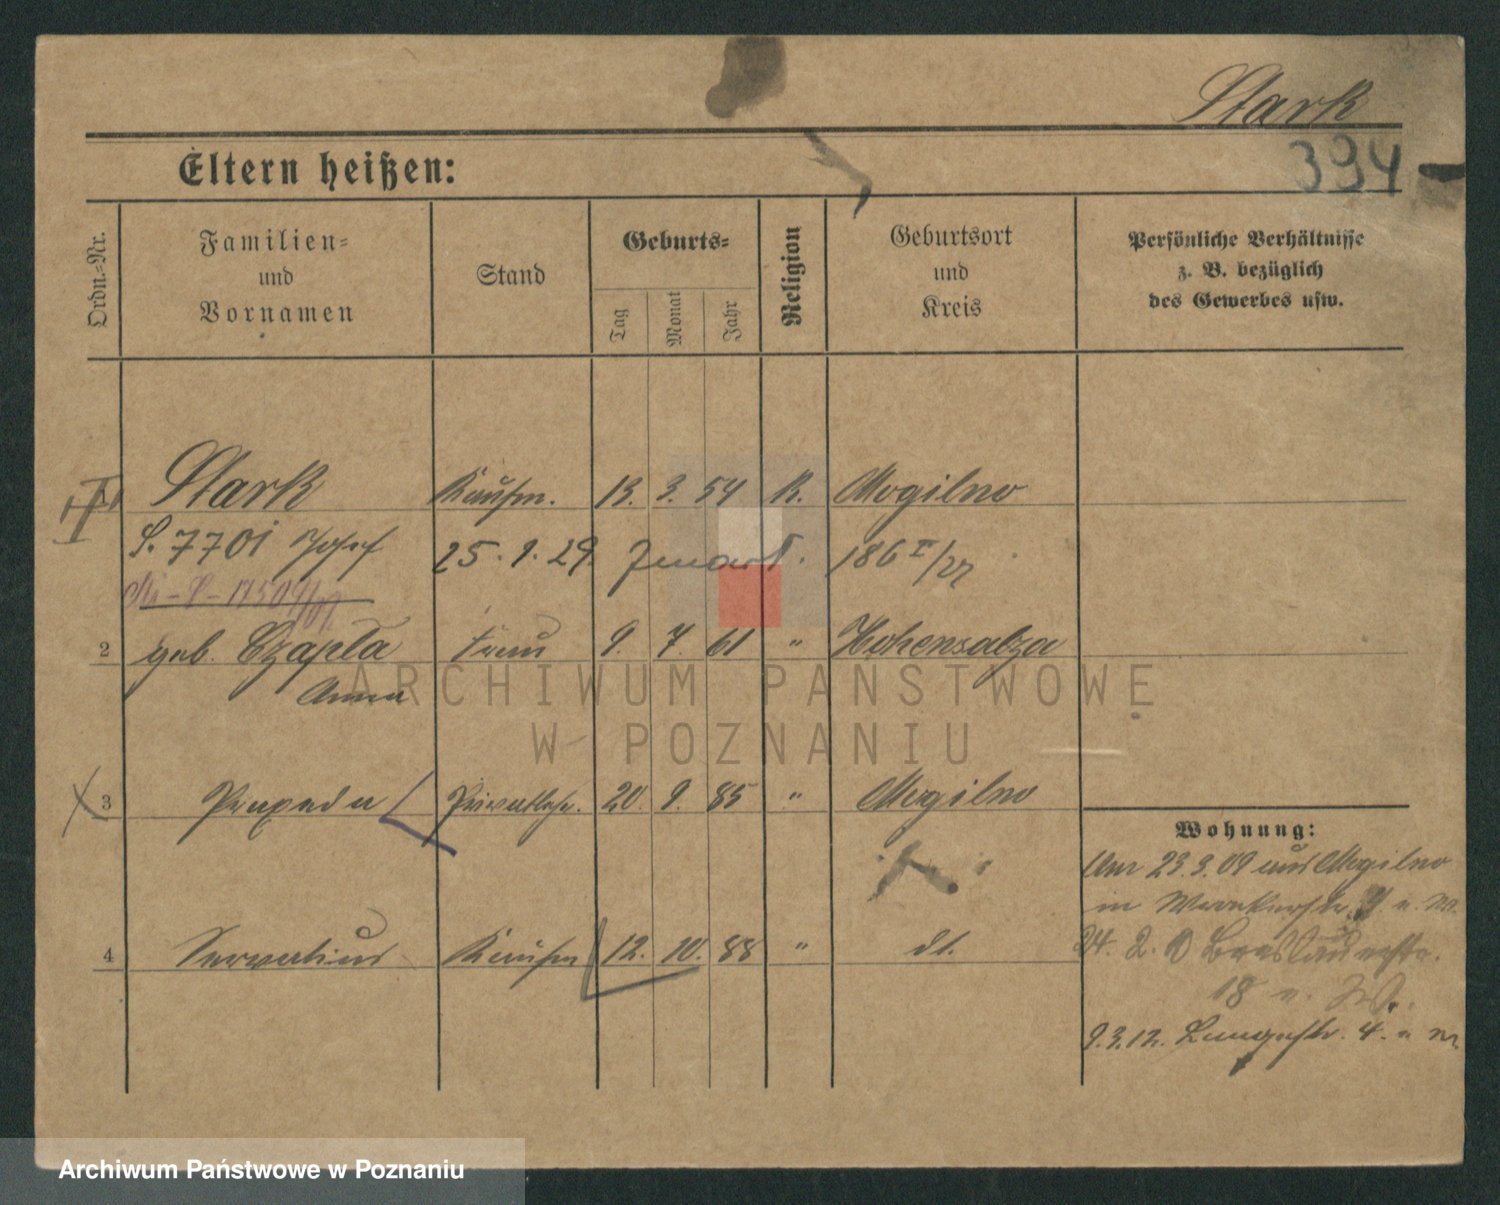 Stark
394
Eltern heißen:
Ordn.-Nr.
Familien-
und
Vornamen
Stand
Geburts-
Tag
Monat
Jahr
Religion
Geburtsort
und
Kreis
Persönliche Verhältnisse
z. B. bezüglich
des Gewerbes usw.
Stark Kaufm. 13. 3. 54 K. Mogilno
S. 7701 Josef 25. 1. 29. 186 I/27
2 geb. Czapla Frau 9. 7. 61 " Hohensalza
Anna
ARCHIWUM PAŃSTWOWE
W POZNANIU
3 Praxeda 20. 9. 85 " Mogilno
Wohnung:
Am 23.3.09 aus Mogilno
in
4 Servatius Kaufm 12. 10. 88 " dt.
24. 2. 10 Breslauerstr.
18
9.3.12. Langestr. 4.
Archiwum Państwowe w Poznaniu